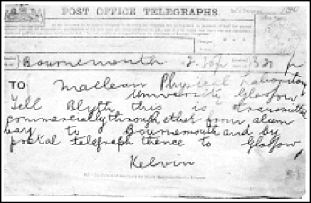 POST OFFICE TELEGRAPHS.
Bournemouth 2.30p 3 20 p
TO Maclean Physical Laboratory
University Glasgow
Tell Blyth this is transmitted
commercially through ether from alum
bay to Bournemouth and by
postal telegraph thence to Glasgow
Kelvin